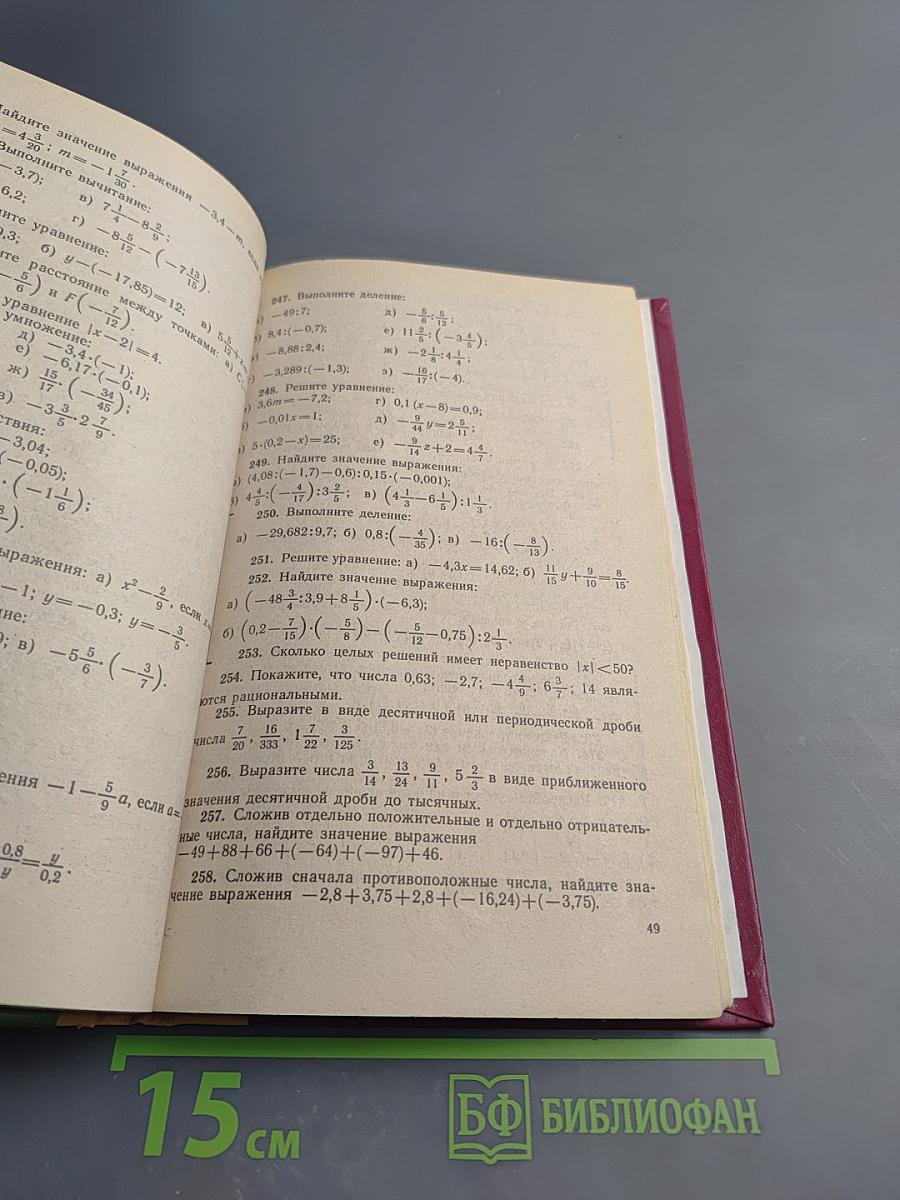 Найдите значение выражения −3,4−m, если
=4 3/20; m=−1 7/30.
Выполните вычитание:
−3,7); в) 7 1/4−8 2/9;
6,2; г) −8 5/12−(−7 13/15).
уравнение:
9,3; б) y−(−17,85)=12; в) 5 5/12+
расстояние между точками: а)
−5/6) и F(−7/12).
уравнение |x−2|=4.
умножение:
д) −3,4·(−1);
е) −6,17·(−0,1);
ж) 15/17·(−34/45);
з) −3 3/5·2 7/9.
−3,04;
(−0,05);
·(−1 1/6);
выражения: а) x²−2/9, если
−1; y=−0,3; y=−3/5.
в) −5 5/6·(−3/7).
−1−5/9 a, если a=
0,8/y=y/0,2.
247. Выполните деление:
−49:7; д) −5/6:5/12;
8,4:(−0,7); е) 11 2/5:(−3 4/5);
−8,88:2,4; ж) −2 1/8:4 1/4;
−3,289:(−1,3); з) −16/17:(−4).
248. Решите уравнение:
3,6m=−7,2; г) 0,1 (x−8)=0,9;
−0,01x=1; д) −9/44 y=2 5/11;
5·(0,2−x)=25; е) −9/14 z+2=4 4/7.
249. Найдите значение выражения:
(4,08:(−1,7)−0,6):0,15·(−0,001);
4 4/5:(−4/17):3 2/5; в) (4 1/3−6 1/5):1 1/3.
250. Выполните деление:
а) −29,682:9,7; б) 0,8:(−4/35); в) −16:(−8/13).
251. Решите уравнение: а) −4,3x=14,62; б) 11/15 y+9/10=8/15.
252. Найдите значение выражения:
а) (−48 3/4:3,9+8 1/5)·(−6,3);
б) (0,2−7/15)·(−5/8)−(−5/12−0,75):2 1/3.
253. Сколько целых решений имеет неравенство |x|<50?
254. Покажите, что числа 0,63; −2,7; −4 4/9; 6 3/7; 14 явля-
ются рациональными.
255. Выразите в виде десятичной или периодической дроби
числа 7/20, 16/333, 1 7/22, 3/125.
256. Выразите числа 3/14, 13/24, 9/11, 5 2/3 в виде приближенного
значения десятичной дроби до тысячных.
257. Сложив отдельно положительные и отдельно отрицатель-
ные числа, найдите значение выражения
−49+88+66+(−64)+(−97)+46.
258. Сложив сначала противоположные числа, найдите зна-
чение выражения −2,8+3,75+2,8+(−16,24)+(−3,75).
49
15 см
БФ БИБЛИОФАН